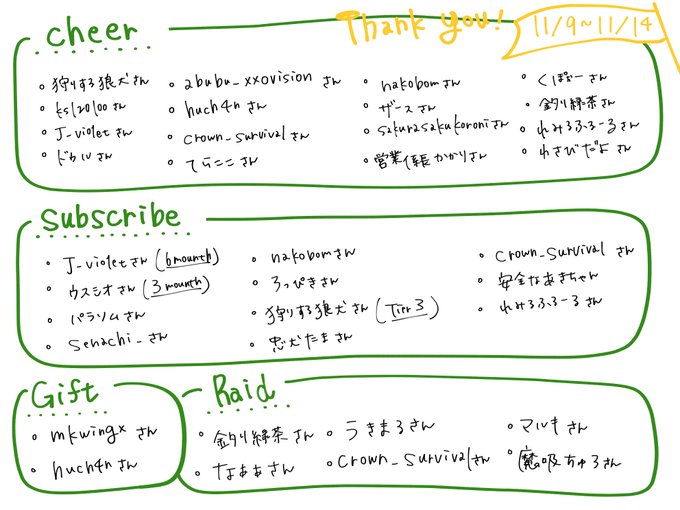 cheer
Thank you!
11/9~11/14
狩りする狼犬さん
ksl20100さん
J-violetさん
ドウルさん
abubu_xxovisionさん
huch4nさん
crown_survivalさん
てらここさん
nakobomさん
ザースさん
sakurasakukoroniさん
営業係長かかりさん
くぽぽーさん
釣り緑茶さん
れみろふろーるさん
わさびだよさん
Subscribe
J-violetさん(6mounth)
ウスシオさん(3mounth)
パラソムさん
Senachi_さん
nakobomさん
ろっぴきさん
狩りする狼犬さん(Tier3)
忠犬たまさん
crown_survivalさん
安全なあきちゃん
れみろふろーるさん
Gift
mkwingxさん
huch4nさん
Raid
釣り緑茶さん
なああさん
うきまるさん
crown_survivalさん
マルキさん
魔吸ちゅろさん